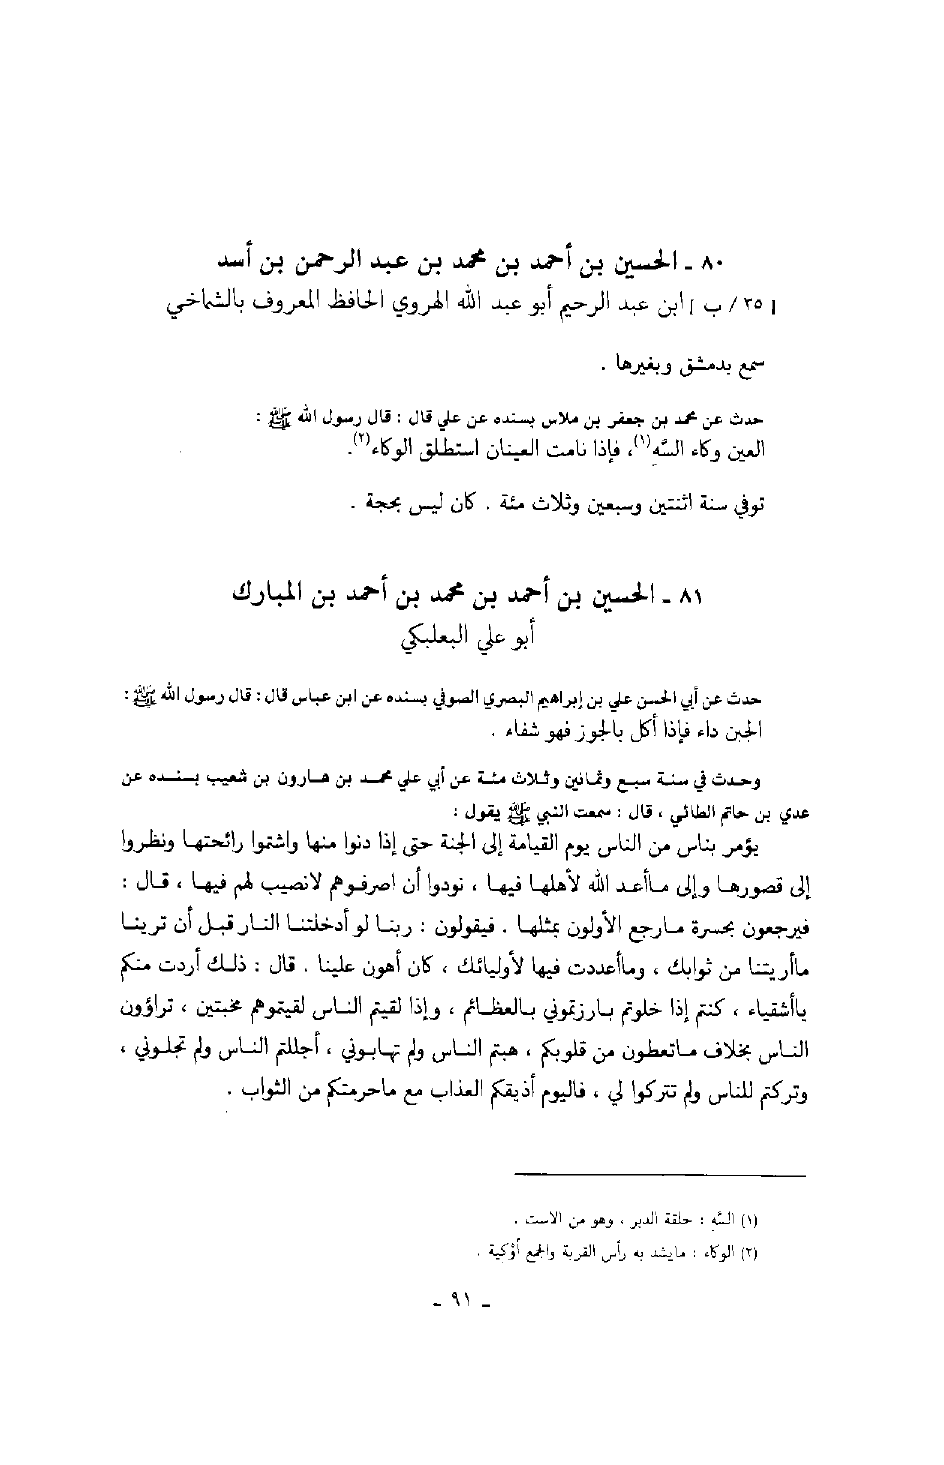 ٨٠ ـ الحسين بن أحمد بن محمد بن عبد الرحمن بن أسد
[ ٢٥ / ب ] ابن عبد الرحيم أبو عبد الله الهروي الحافظ المعروف بالشماخي
سمع بدمشق وبغيرها .
حدث عن محمد بن جعفر بن ملاس بسنده عن علي قال : قال رسول الله ﷺ :
العين وكاء السَّهِ(١)، فإذا نامت العينان استطلق الوكاء(٢).
توفي سنة اثنتين وسبعين وثلاث مئة . كان ليس بحجة .
٨١ ـ الحسين بن أحمد بن محمد بن أحمد بن المبارك
أبو علي البعلبكي
حدث عن أبي الحسن علي بن إبراهيم البصري الصوفي بسنده عن ابن عباس قال : قال رسول الله ﷺ :
الجبن داء فإذا أكل بالجوز فهو شفاء .
وحدث في سنة سبع وثمانين وثلاث مئة عن أبي علي محمد بن هارون بن شعيب بسنده عن
عدي بن حاتم الطائي ، قال : سمعت النبي ﷺ يقول :
يؤمر بناس من الناس يوم القيامة إلى الجنة حتى إذا دنوا منها واشتموا رائحتها ونظروا
إلى قصورها وإلى ماأعد الله لأهلها فيها ، نودوا أن اصرفوهم لانصيب لهم فيها ، قال :
فيرجعون بحسرة مارجع الأولون بمثلها . فيقولون : ربنا لو أدخلتنا النار قبل أن ترينا
ماأريتنا من ثوابك ، وماأعددت فيها لأوليائك ، كان أهون علينا . قال : ذلك أردت منكم
ياأشقياء ، كنتم إذا خلوتم بارزتموني بالعظائم ، وإذا لقيتم الناس لقيتموهم مخبتين ، تراؤون
الناس بخلاف ماتعطون من قلوبكم ، هبتم الناس ولم تهابوني ، أجللتم الناس ولم تجلوني ،
وتركتم للناس ولم تتركوا لي ، فاليوم أذيقكم العذاب مع ماحرمتكم من الثواب .
(١) السَّه : حلقة الدبر ، وهو من الاست .
(٢) الوكاء : مايشد به رأس القربة والجمع أوْكية .
ـ ٩١ ـ